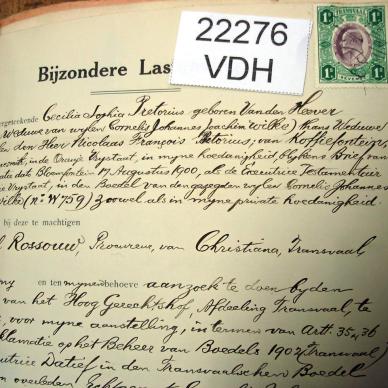 22276
VDH
TRANSVAAL
1/- 1/-
REVENUE
Bijzondere Las
ergeteekende Cecilia Sophia Pretorius geboren Van den Heever
Weduwe van wijlen Cornelis Johannes Joachim Wilke) thans Weduwe
den Heer Nicolaas François Pretorius, van Koffiefontein,
in de Oranje Vrystaat, in myne hoedanigheid, blykens brief van
dd. Bloemfontein 17 Augustus 1900, als de Executrice Testamentair
Vrystaat, in den Boedel van den gezegden wylen Cornelis Johannes
Wilke (No. W759) zoowel als in myne private hoedanigheid.
bij deze te machtigen
Rossouw, Procureur, van Christiana, Transvaal
en ten mynen behoeve aanzoek te doen by den
van het Hoog Gerechtshof, Afdeeling Transvaal, te
voor myne aanstelling, in termen van Artt. 35, 36
klamatie op het Beheer van Boedels 1902 (Transvaal)
utrice Datief in den Transvaalschen Boedel
overleden